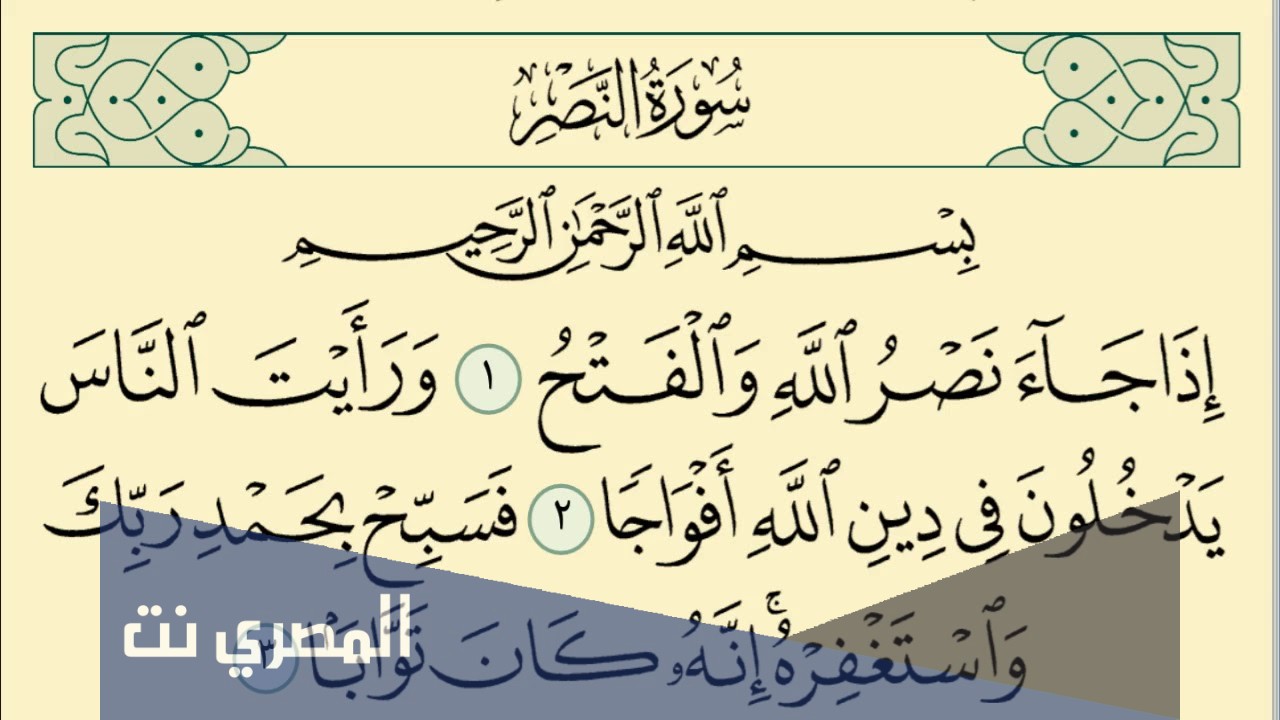 سُورَةُ النَّصْرِ
بِسْمِ ٱللَّهِ ٱلرَّحْمَٰنِ ٱلرَّحِيمِ
إِذَا جَآءَ نَصْرُ ٱللَّهِ وَٱلْفَتْحُ ١ وَرَأَيْتَ ٱلنَّاسَ
يَدْخُلُونَ فِي دِينِ ٱللَّهِ أَفْوَاجًا ٢ فَسَبِّحْ بِحَمْدِ رَبِّكَ
وَٱسْتَغْفِرْهُ ۚ إِنَّهُۥ كَانَ تَوَّابًۢا ٣
المصري نت